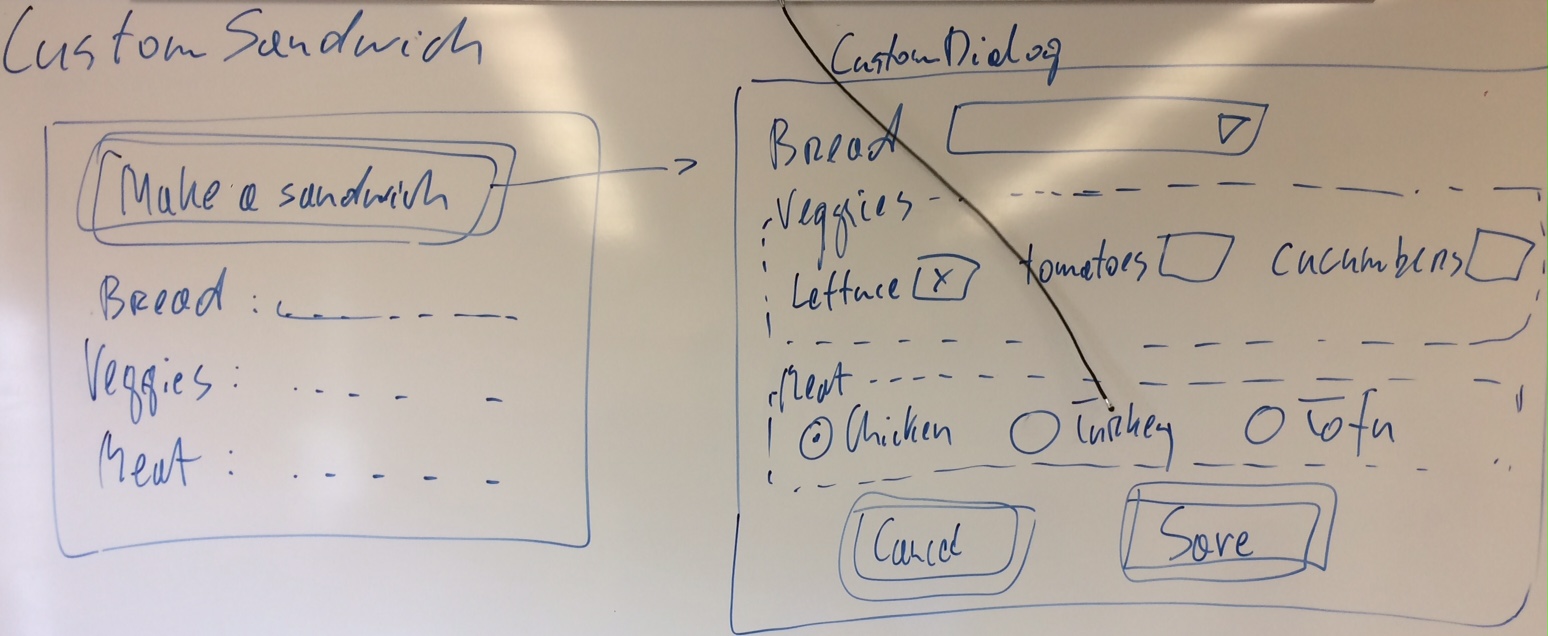 Custom Sandwich
Make a sandwich
Bread :
Veggies :
Meat :
CustomDialog
Bread
Veggies
Lettuce x tomatoes cucumbers
Meat
Chicken Turkey Tofu
Cancel Save